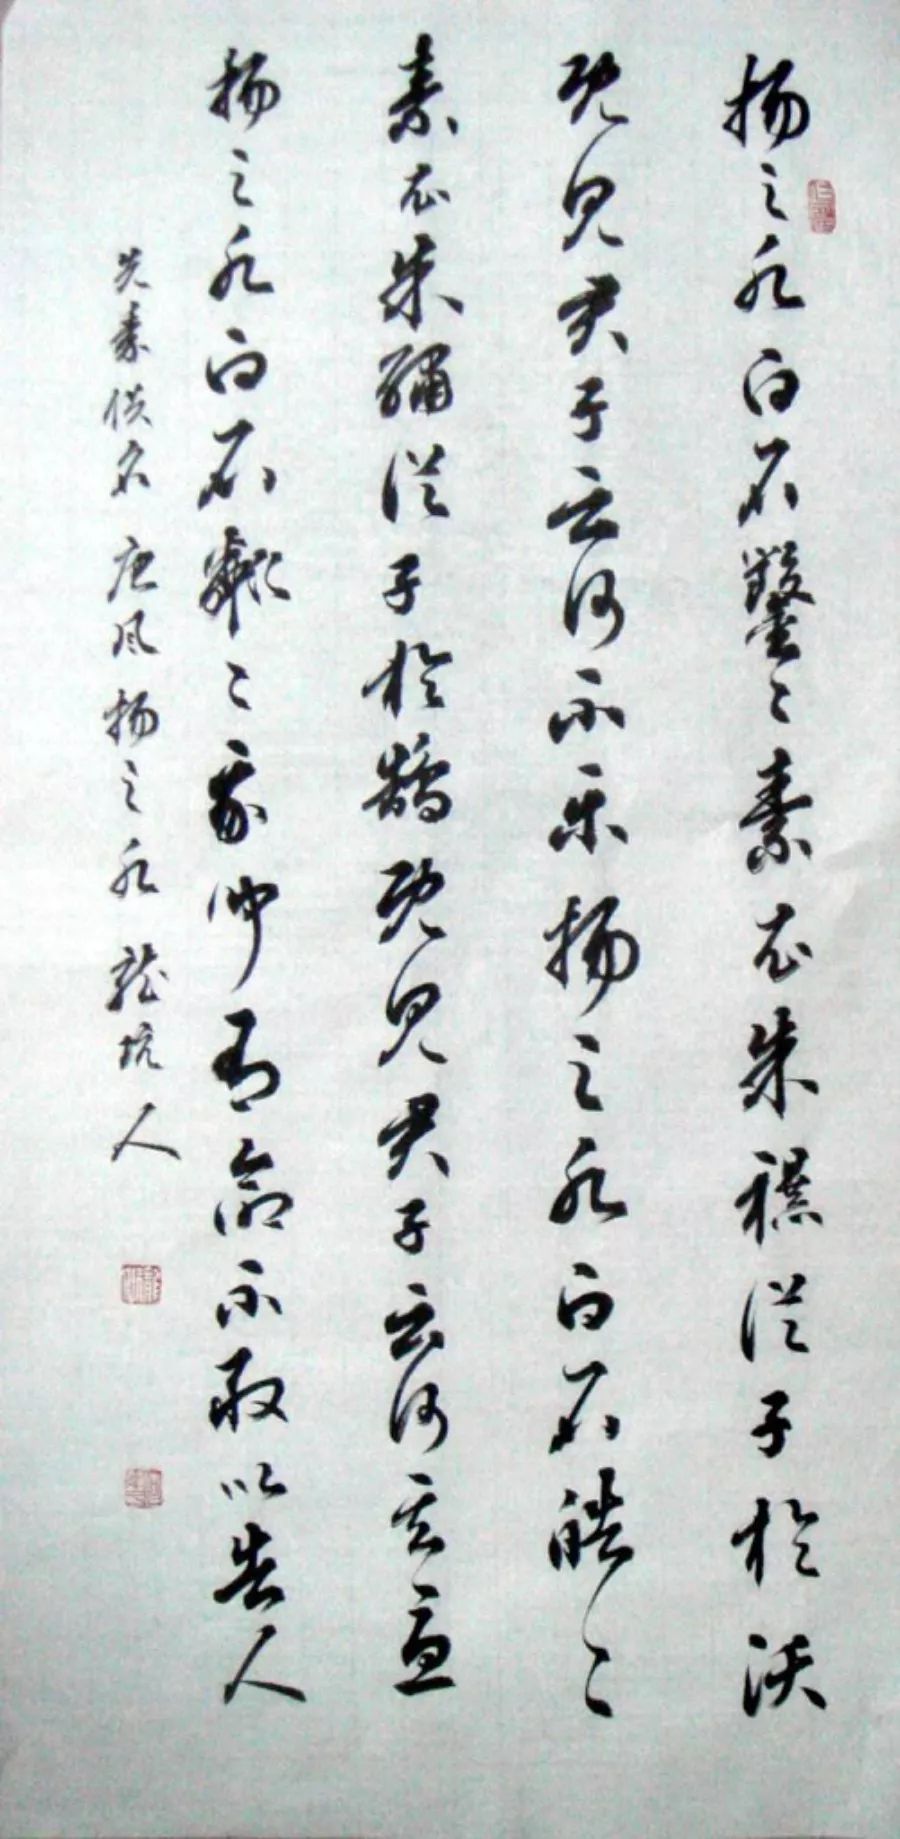 扬之水白石鑿〻素衣朱襮從子於沃
既見君子云何不乐扬之水白石皓〻
素衣朱繡從子於鵠既見君子云何其憂
扬之水白石粼〻我聞有命不敢以告人
先秦佚名 唐风 扬之水 龍坑人